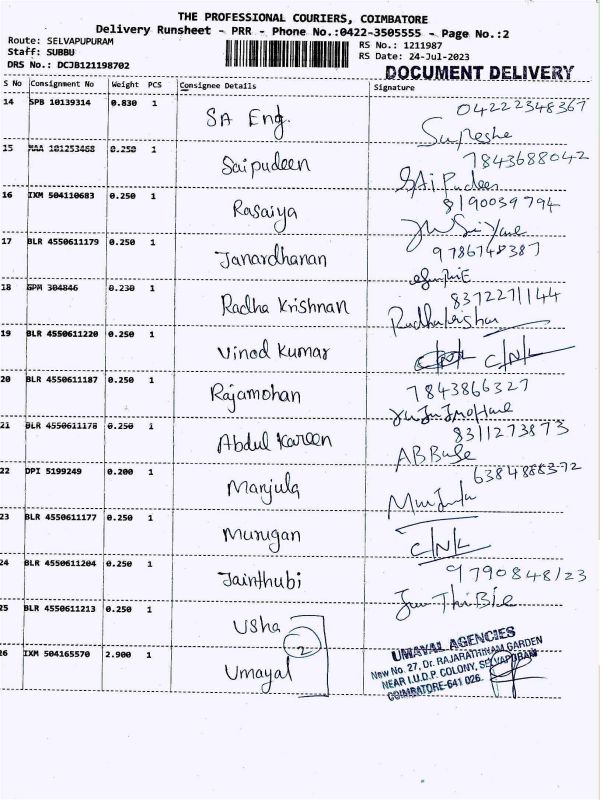 THE PROFESSIONAL COURIERS, COIMBATORE
Delivery Runsheet - PRR - Phone No.:0422-3505555 - Page No.:2
Route: SELVAPUPURAM
Staff: SUBBU
DRS No.: DCJB121198702
RS No.: 1211987
RS Date: 24-Jul-2023
DOCUMENT DELIVERY
S No Consignment No Weight PCS Consignee Details Signature
14 SPB 10139314 0.830 1 SA Eng. 04222348367
Suresha
15 MAA 181253468 0.250 1 Saipudeen 7843688042
SAi Pudeen
16 IXM 504110683 0.250 1 Rasaiya 8190039794
17 BLR 4550611179 0.250 1 Janardhanan 9786748387
18 GPM 304846 0.230 1 Radha Krishnan 8372271144
19 BLR 4550611220 0.250 1 Vinod Kumar C/N/L
20 BLR 4550611187 0.250 1 Rajamohan 7843866327
21 BLR 4550611178 0.250 1 Abdul Kareen 8311273873
22 DPI 5199249 0.200 1 Manjula 6384888372
23 BLR 4550611177 0.250 1 Murugan C/N/L
24 BLR 4550611204 0.250 1 Jainthubi 9790848123
25 BLR 4550611213 0.250 1 Usha
2
26 IXM 504165570 2.900 1 Umayal
UMAYAL AGENCIES
New No. 27, Dr. RAJARATHINAM GARDEN
NEAR I.U.D.P. COLONY, SELVAPURAM
COIMBATORE-641 026.